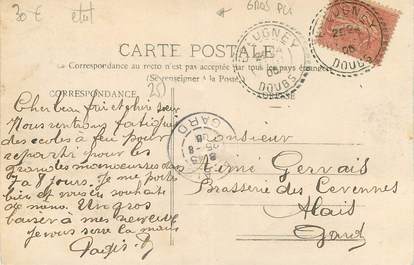 30 €
CARTE POSTALE
La Correspondance au recto n'est pas acceptée par tous les pays étrangers
(Se renseigner à la Poste)
CORRESPONDANCE
ADRESSE
UGNEY
DOUBS
GARD
Cher beau frère et chère sœur
Nous rentrons fatigués
des écoles à feu pour
repartir pour les
grandes manœuvres dans
8 jours. Je me porte
bien et vous souhaite
de même. Un gros
baiser à mes neveux
Je vous serre la main
Pagès
Monsieur
Aimé Gervais
Brasserie des Cevennes
Alais
Gard